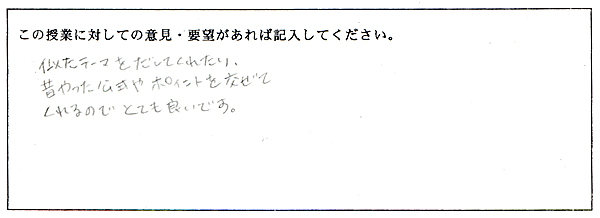 この授業に対しての意見・要望があれば記入してください。
似たテーマをだしてくれたり、
昔やった公式やポイントを交ぜて
くれるのでとても良いです。